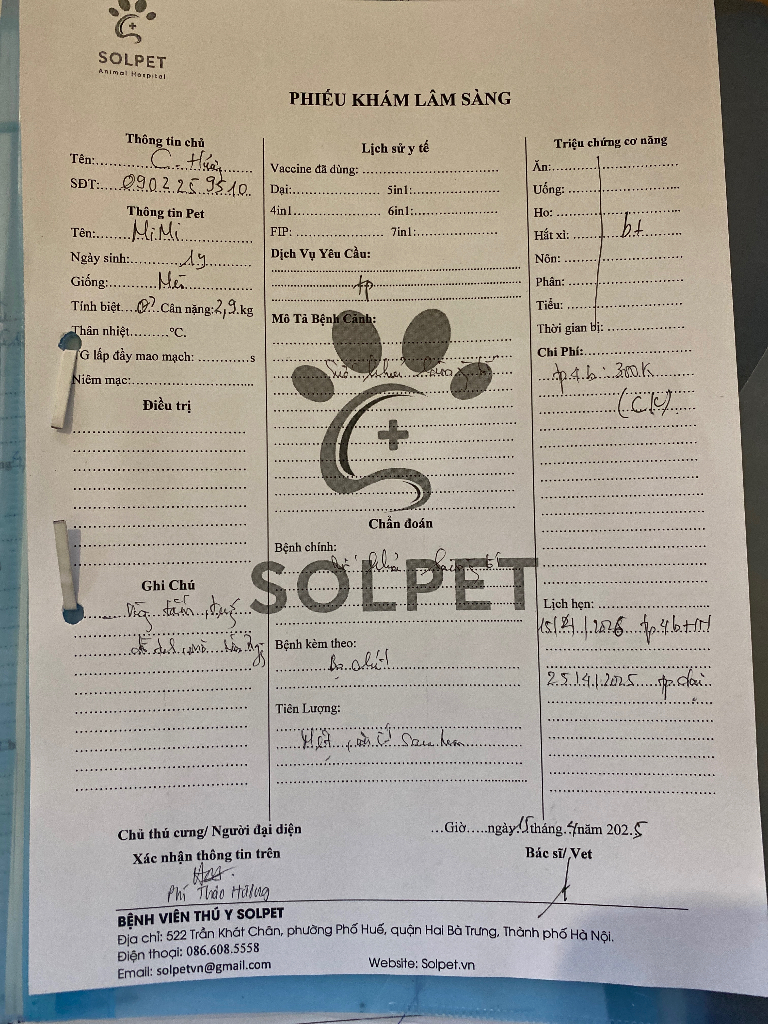 SOLPET
Animal Hospital
PHIẾU KHÁM LÂM SÀNG
Thông tin chủ
Tên: C. Hương
SĐT: 0902259510
Thông tin Pet
Tên: MiMi
Ngày sinh: 1y
Giống: Mèo
Tính biệt Cân nặng: 2,9 kg
Thân nhiệt °C.
TG lấp đầy mao mạch: s
Niêm mạc:
Điều trị
Ghi Chú
tắm
Lịch sử y tế
Vaccine đã dùng:
Dại: 5in1:
4in1 6in1:
FIP: 7in1:
Dịch Vụ Yêu Cầu:
tp
Mô Tả Bệnh Cảnh:
Sức khoẻ
Chẩn đoán
Bệnh chính:
SOLPET
Bệnh kèm theo:
Tiên Lượng:
Triệu chứng cơ năng
Ăn:
Uống:
Ho:
Hắt xì: bt
Nôn:
Phân:
Tiểu:
Thời gian bị:
Chi Phí:
tp 4b: 300K
(CK)
Lịch hẹn:
tp 4b
25/4/2025 tp dại
Chủ thú cưng/ Người đại diện
Xác nhận thông tin trên
Phí Thảo Hương
Giờ ngày 15 tháng 4 năm 2025
Bác sĩ/ Vet
BỆNH VIÊN THÚ Y SOLPET
Địa chỉ: 522 Trần Khát Chân, phường Phố Huế, quận Hai Bà Trưng, Thành phố Hà Nội.
Điện thoại: 086.608.5558
Email: solpetvn@gmail.com Website: Solpet.vn